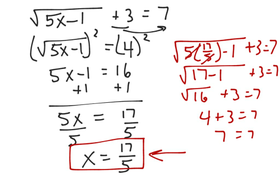 √5x-1 + 3 = 7
(√5x-1)² = (4)²
5x-1 = 16
+1 +1
5x/5 = 17/5
x = 17/5
√5(17/5)-1 + 3 = 7
√17-1 + 3 = 7
√16 + 3 = 7
4 + 3 = 7
7 = 7